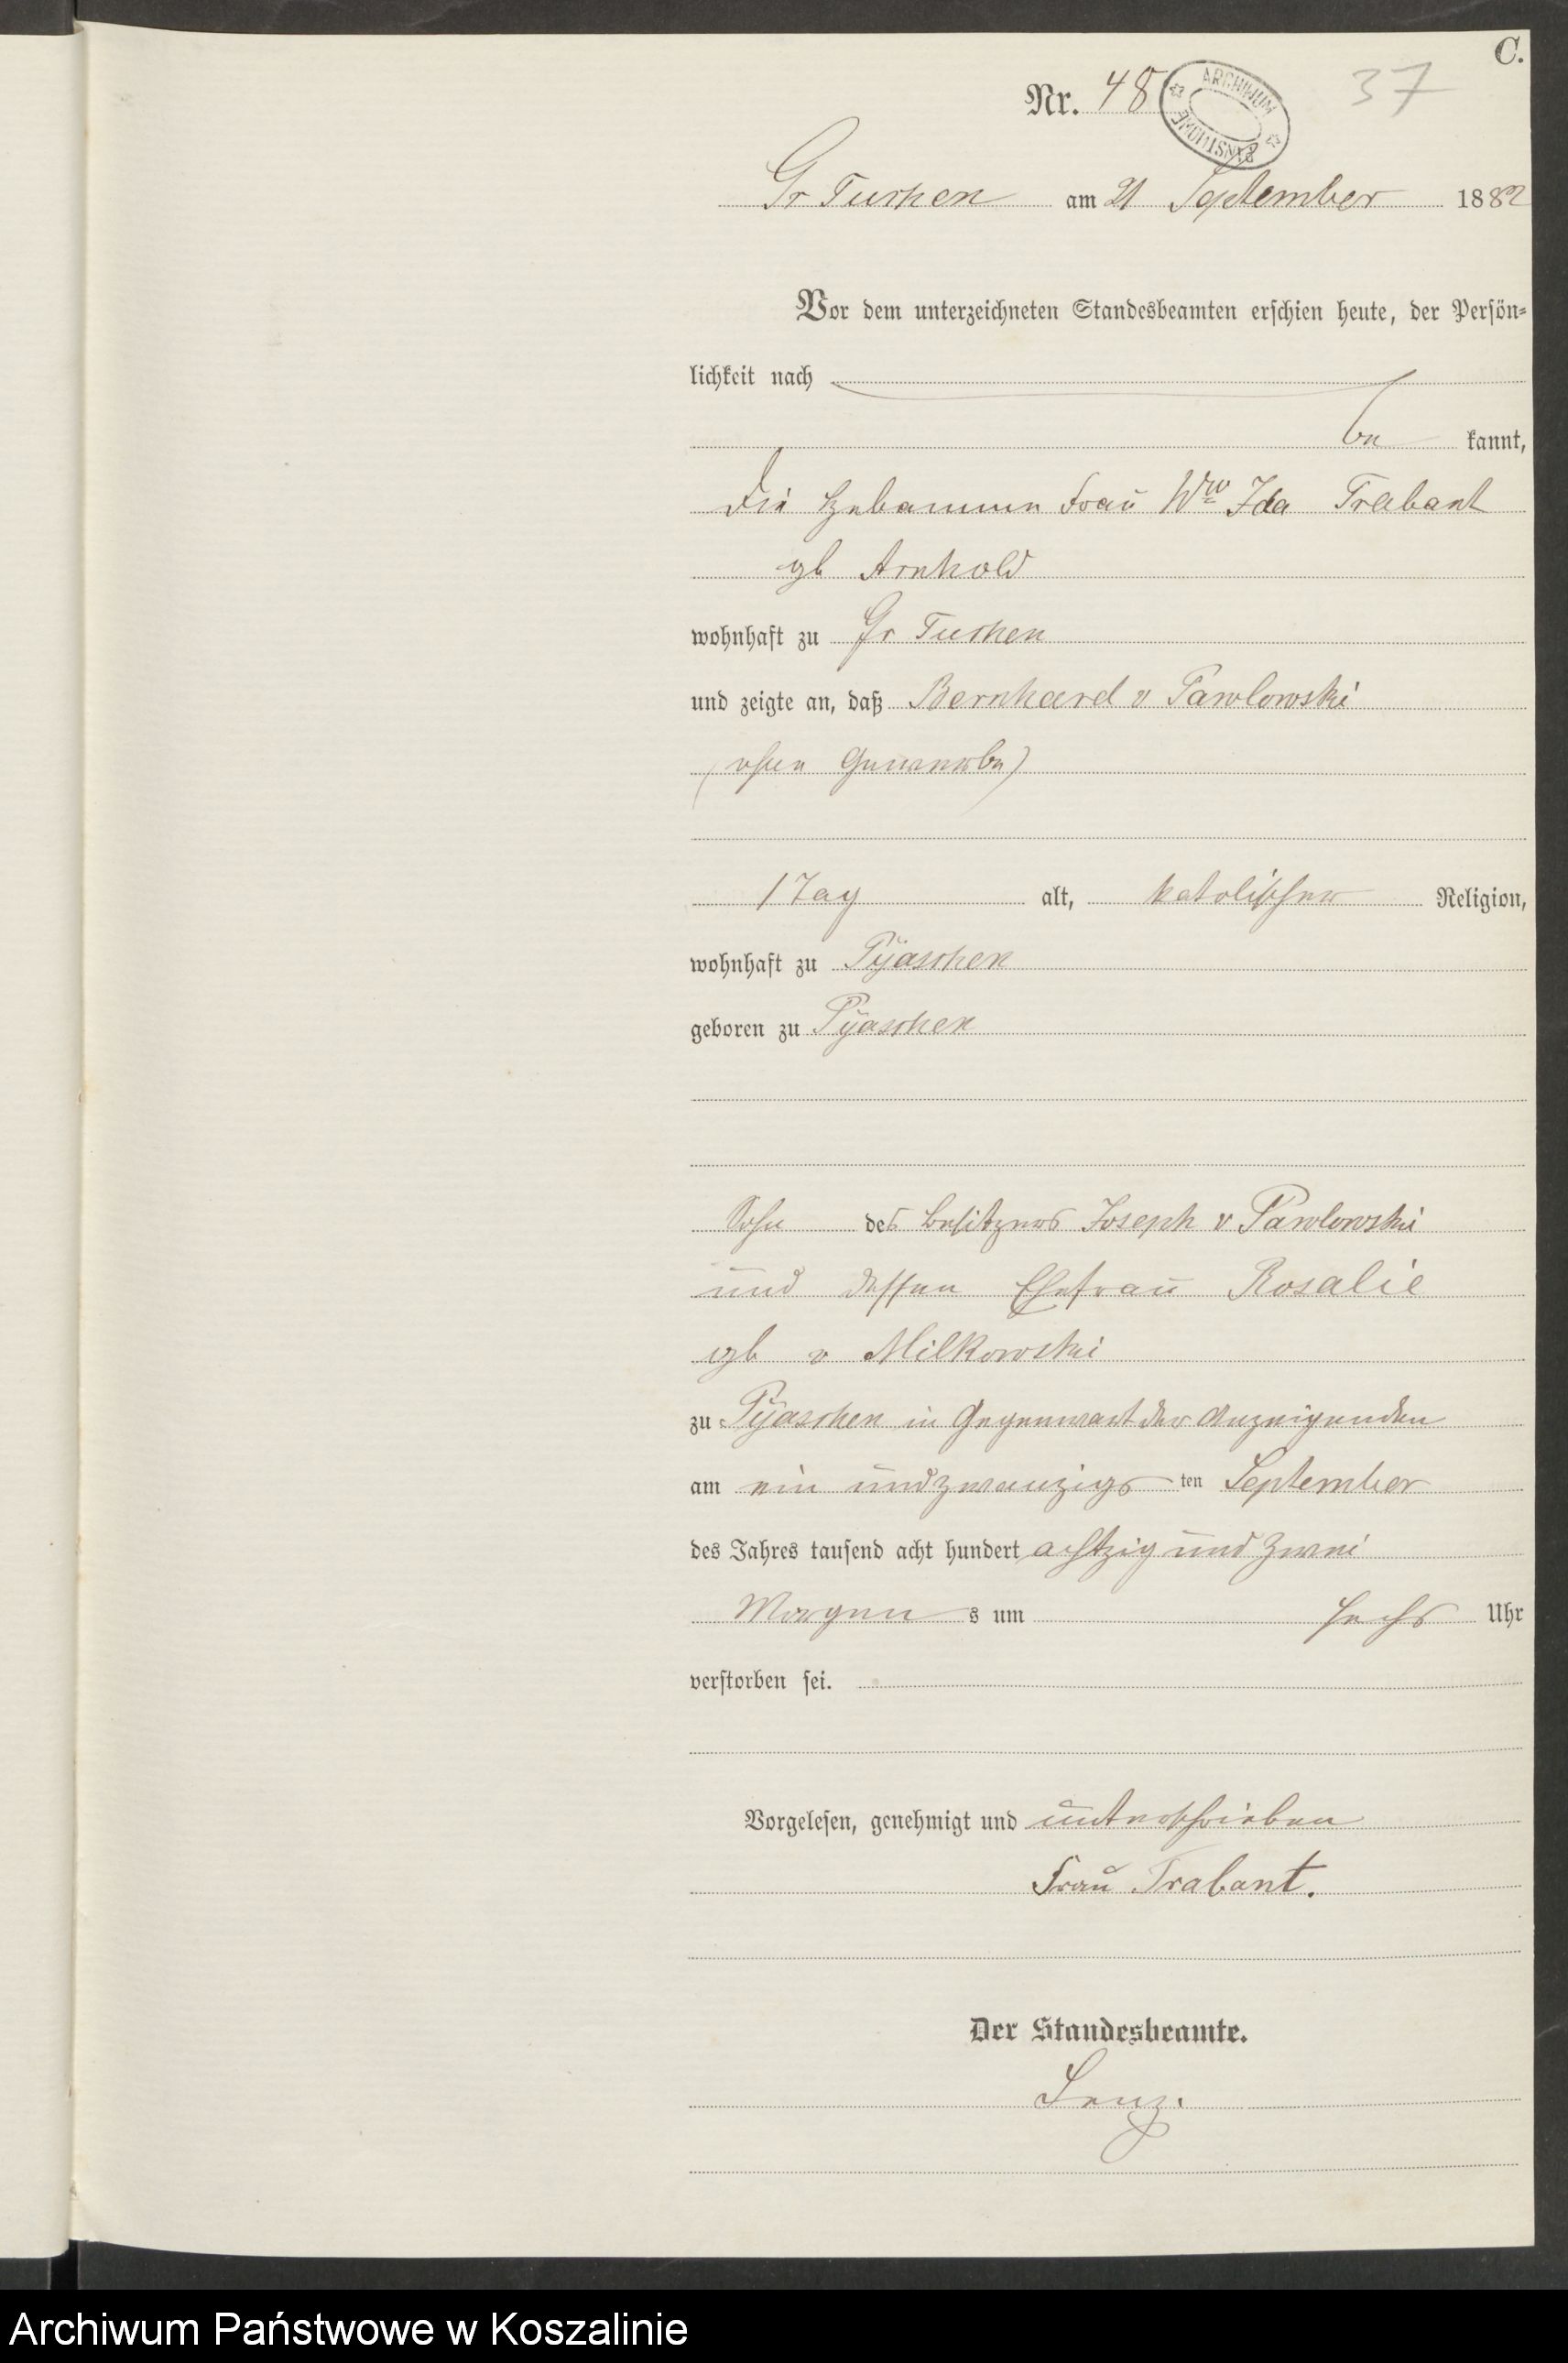 C.
Nr. 48
37
ARCHIWUM PAŃSTWOWE
Gr Tuchen am 21 September 1882
Vor dem unterzeichneten Standesbeamten erschien heute, der Persön-
lichkeit nach
be kannt,
die Hebamme Frau Ww Ida Trabant
gb Arnhold
wohnhaft zu Gr Tuchen
und zeigte an, daß Bernhard v Pawlowski
(ohne Gewerbe)
1 Tag alt, katolischer Religion,
wohnhaft zu Pÿaschen
geboren zu Pÿaschen
Sohn des Besitzers Joseph v Pawlowski
und dessen Ehefrau Rosalie
gb v Milkowski
zu Pÿaschen in Gegenwart der Anzeigenden
am ein undzwanzigs ten September
des Jahres tausend acht hundert achtzig und zwei
Morgen s um sechs Uhr
verstorben sei.
Vorgelesen, genehmigt und unterschrieben
Frau Trabant.
Der Standesbeamte.
Lenz.
Archiwum Państwowe w Koszalinie